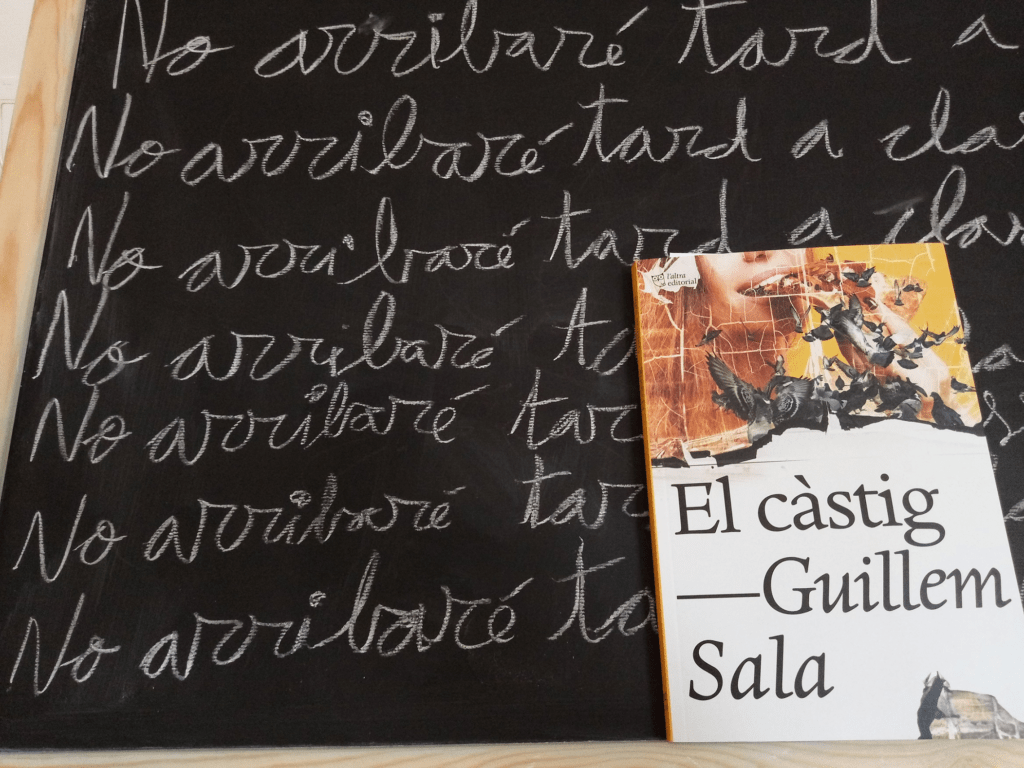 No arribaré tard a
No arribaré tard a clas
No arribaré tard a clas
No arribaré ta
No arribaré tar
No arribaré tar
No arribaré ta
l'altra
editorial
El càstig
—Guillem
Sala